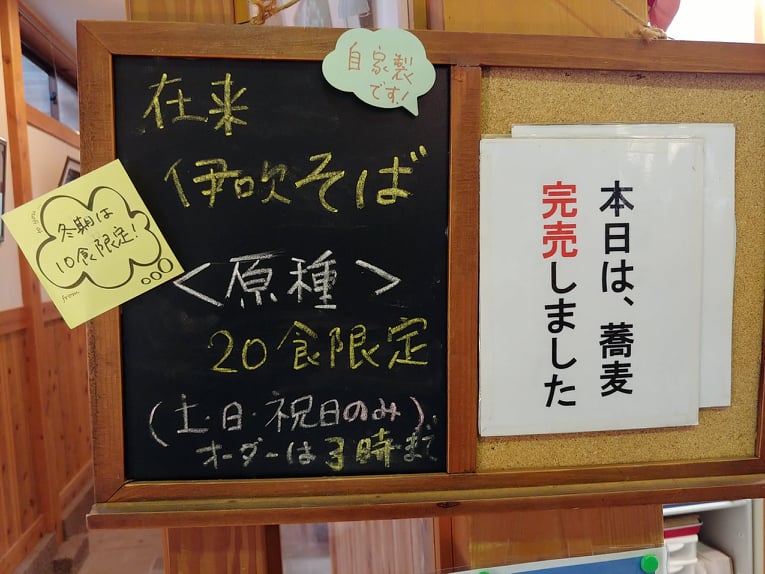 自家製
です!
在来
伊吹そば
<原種>
20食限定
(土・日・祝日のみ)
オーダーは3時まで
冬期は
10食限定!
from
本日は、蕎麦
完売しました